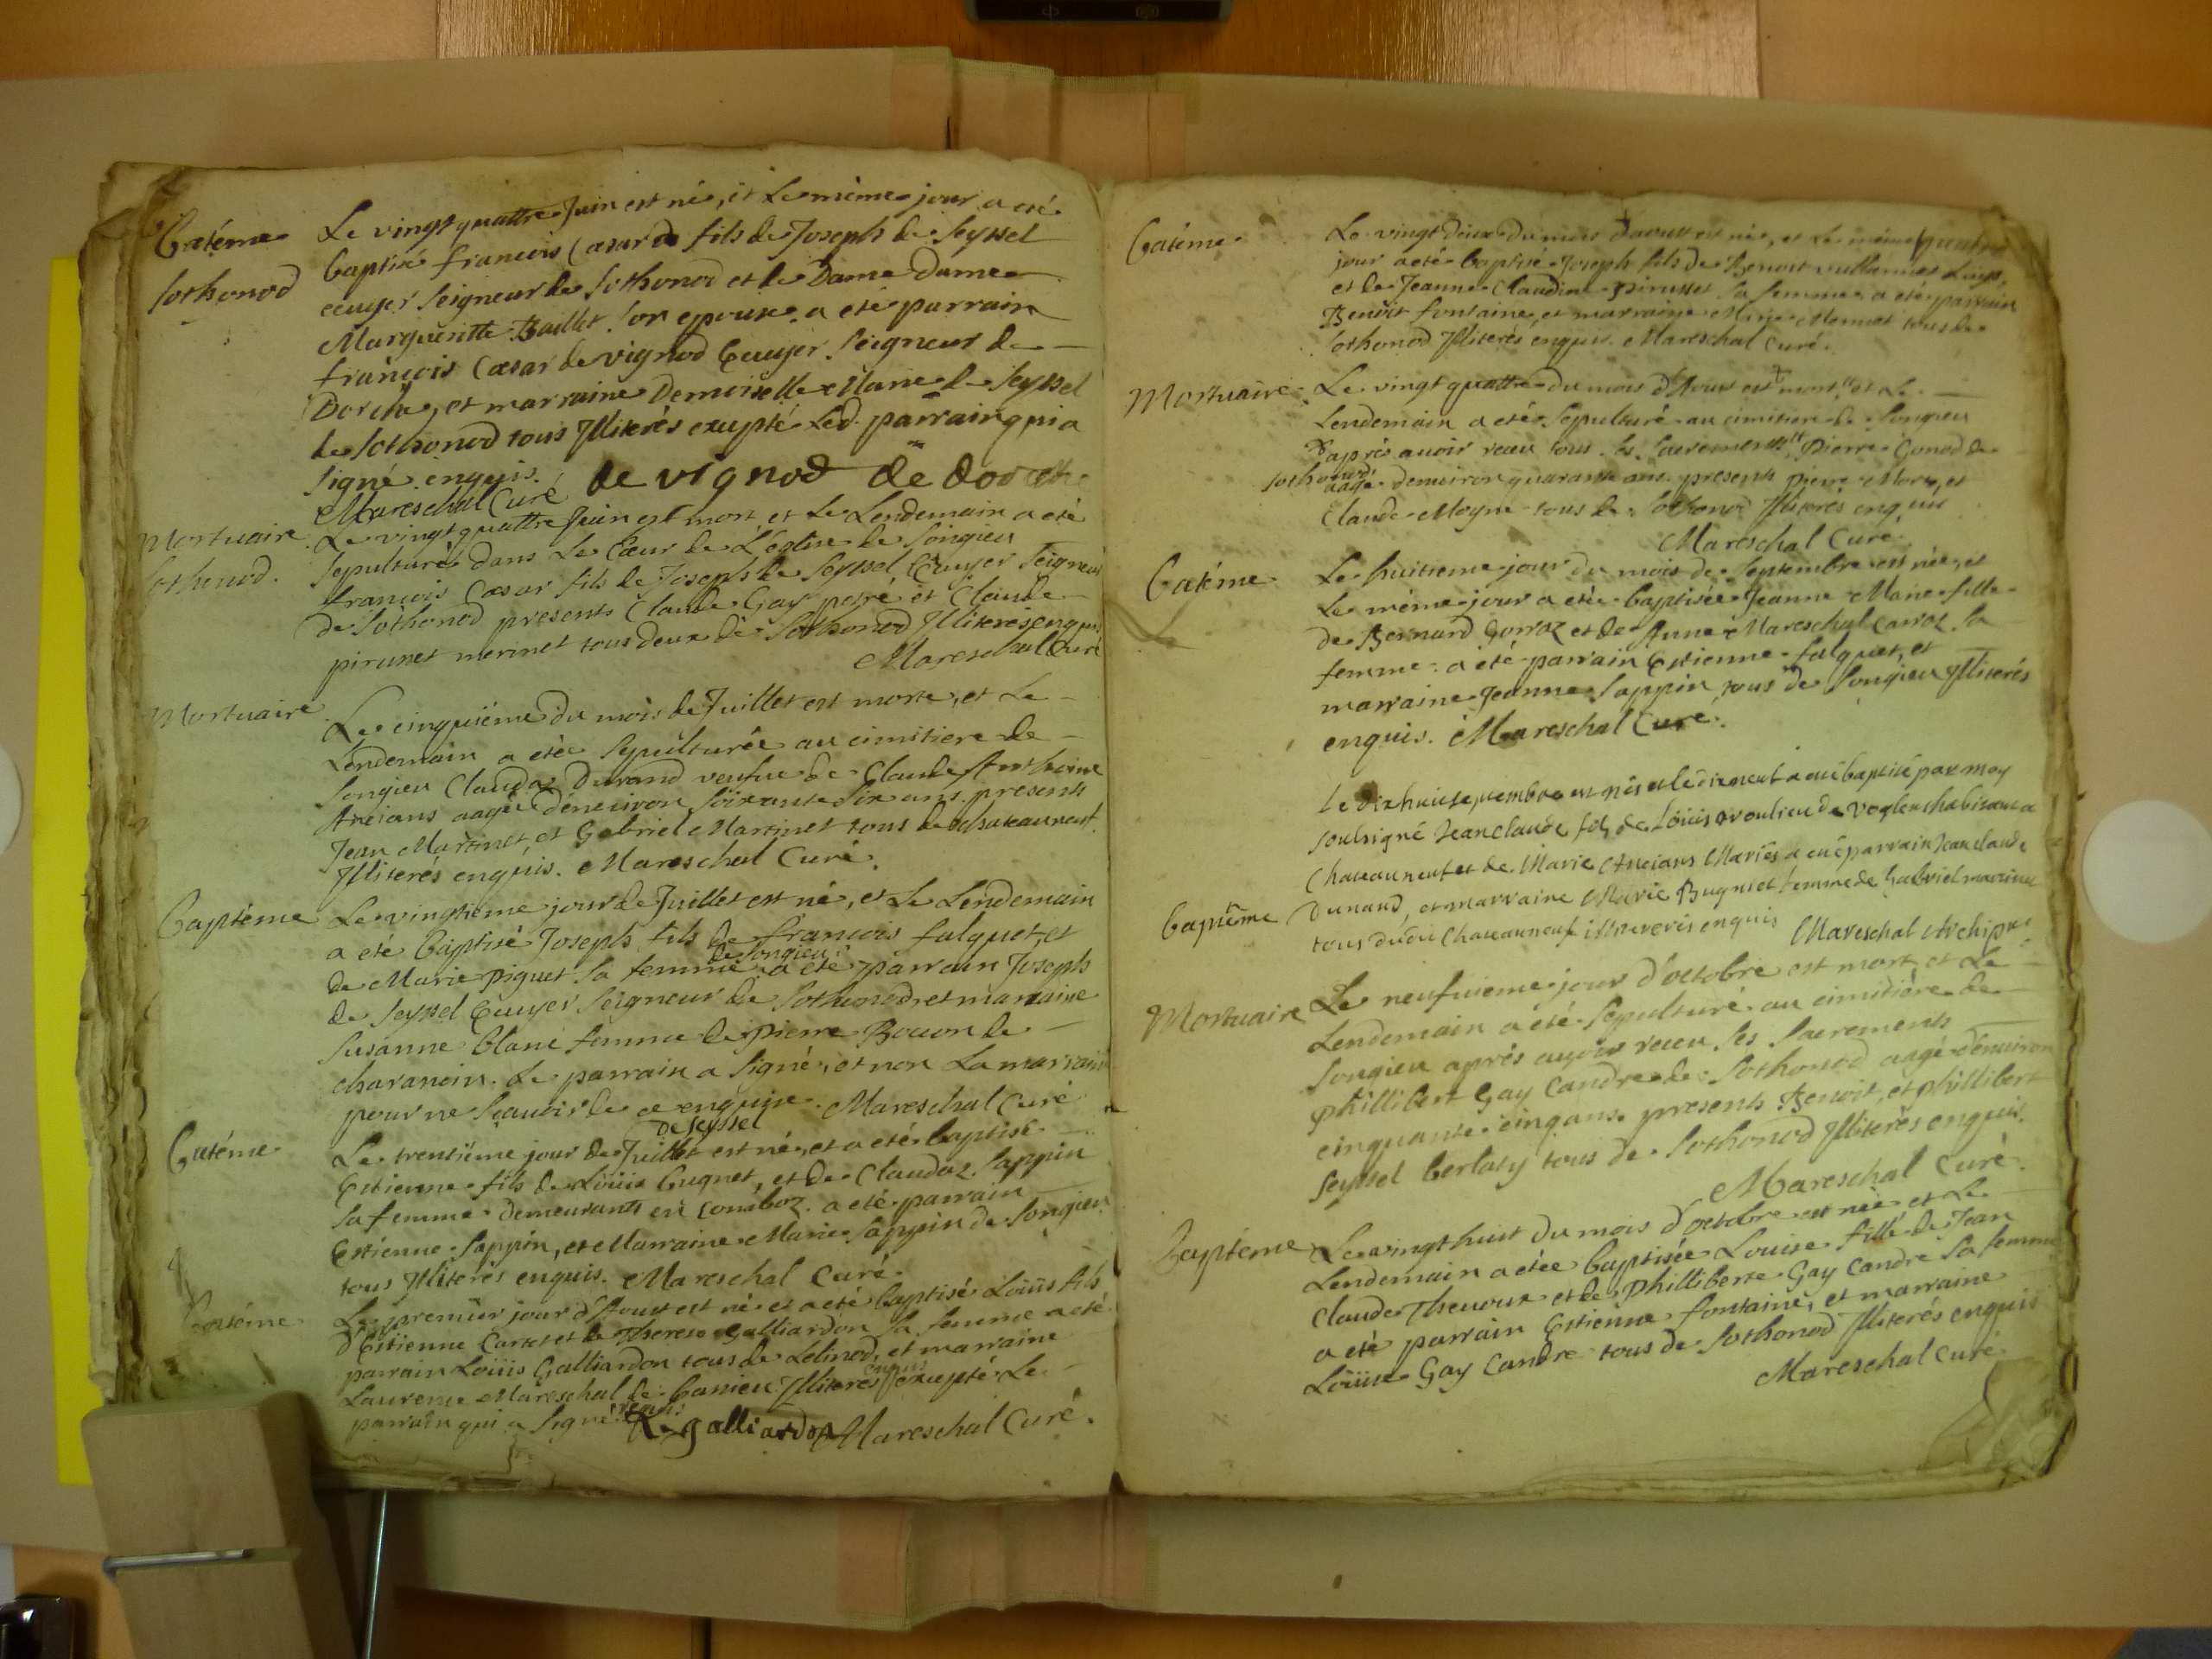 Batéme Le vingt quattre Juin est né, et Le même jour a eté
Sothonod baptisé francois Cæsar fils de Joseph de Seyssel
ecuyer Seigneur de Sothonod et de Dame dame
Margueritte Baillet Son epouse. a eté parrain
françois Cæsar de vignod Ecuyer Seigneur de
Dorche, et marraine Demoiselle Marie de Seyssel
de Sothonod tous Illiterés exepté Led. parrain qui a
Signé enquis. de vignod de dorche
Mareschal Curé
Mortuaire Le vingt quattre Juin est mort et Le Lendemain a eté
Sothonod. Sepulturé dans Le Cœur de L'église de Songieu
francois Cæsar fils de Joseph de Seyssel Ecuyer Seigneur
de Sothonod presents Claude Gay petré et Claude
pirunet mermet tous deux de Sothonod Illiterés enquis
Mareschal Curé
Mortuaire Le cinquiéme du mois de Juillet est morte, et Le
Lendemain a etée Sepulturée au cimitiere de
Songieu Claudaz Durand veufue de Claude Anthoine
Ancians aagée d'enuiron Soixante Six ans. presents
Jean Martinet, et Gabriel Martinet tous de chateauneuf.
Illiterés enquis. Mareschal Curé.
Baptéme Le vingtieme jour de Juillet est né, et Le Lendemain
a eté Baptisé Joseph fils de francois falquet, et
de Songieu
de Marie piguet Sa femme. a eté parrain Joseph
de Seyssel Ecuyer Seigneur de Sothonod, et marraine
Susanne blanc femme de pierre Bouon de
charancin. Le parrain a Signé, et non La marraine
pour ne Scauoir de ce enquise. Mareschal Curé
De Seyssel
Batéme Le trentiéme jour de Juillet est né, et a eté baptisé
Estienne fils de Loüis bugnet, et de Claudaz Sappin
Sa femme demeurants en . a eté parrain
Estienne Sappin, et Marraine Marie Sappin de Songieu
tous Illiterés enquis. Mareschal Curé.
Batéme Le premier jour d'Aoust est né et a eté baptisé Loüis fils
d'Estienne Carter et de Therese Galliardon Sa femme a eté
parrain Loüis Galliardon tous de Lelinod, et marraine
enquis
Laurence Mareschal de baneins Illiterés exepté Le
parrain qui a Signé
L. galliardon Mareschal Curé.
Batéme Le vingt deux du mois d'aoust est né, et Le même
jour a eté baptisé Joseph fils de Benoit vuillermet
et de Jeanne Claudine pirusset Sa femme a eté parrain
Benoit fontaine, et marraine Marie Mermet tous de
Sothonod Illiterés enquis. Mareschal Curé.
Mortuaire Le vingt quattre du mois d'Aoust est mort, et Le
Lendemain a eté Sepulturé au cimitiere de Songieu
apres auoir receu tous les Sacrements Pierre Gonod de
Sothonod aagé d'enuiron quarante ans. presents pierre More, et
Claude Moyne tous de Sothonod Illiterés enquis
Mareschal Curé.
Batéme Le huitieme jour du mois de Septembre est née, et
Le même jour a etée baptisée Jeanne Marie fille
de Bernard Gorroz et de Anne Mareschal Carroz Sa
femme. a eté parrain Estienne falquet, et
marraine Jeanne Sappin tous de Songieu Illiterés
enquis. Mareschal Curé.
Le dixhuit septembre est nés et le dixneuf a eté baptisé par moy
soussigné Jean Claude fils de Loüis de
Chateauneuf et de Marie Ancians Mariés a eté parrain Jean Claude
baptême Dunand, et marraine Marie Bugnet femme de Gabriel martinet
tous dudit Chateauneuf illiterés enquis Mareschal Archiprê
Mortuaire Le neufuieme jour d'octobre est mort, et Le
Lendemain a eté Sepulturé au cimitiére de
Songieu aprés auoir receu Ses Sacrements
phillibert Gay Candre de Sothonod aagé d'enuiron
cinquante cinq ans. presents Benoit, et phillibert
Seyssel berlaty tous de Sothonod Illiterés enquis.
Mareschal Curé.
Baptéme Le vingthuit du mois d'octobre est née et Le
Lendemain a etée baptisée Louise fille de Jean
Claude Theuoux et de Philliberte Gay Candre Sa femme
a eté parrain Estienne fontaine, et marraine
Loüise Gay Candre tous de Sothonod Illiterés enquis
Mareschal Curé.